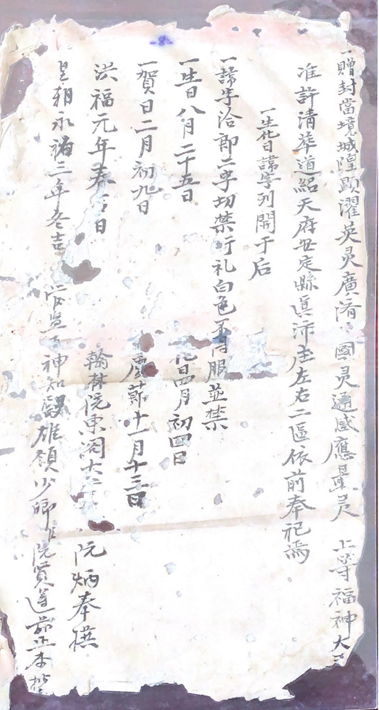 一贈封當境城隍顯濯英灵廣濟国灵通感應最灵 上等福神大王
准許清華道紹天府安定縣真沛庄左右二區依前奉祀焉
一生化日諱字列開于后
一諱字洽郎二字切禁行礼白色 服並禁
一生日八月二十五日 化日四月初四日
一賀日二月初九日 慶節十一月十三日
洪福元年春 日 翰林院東阁大 阮炳奉撰
皇朝永祐三年冬吉 神知殿雄領少卿 阮賢遵